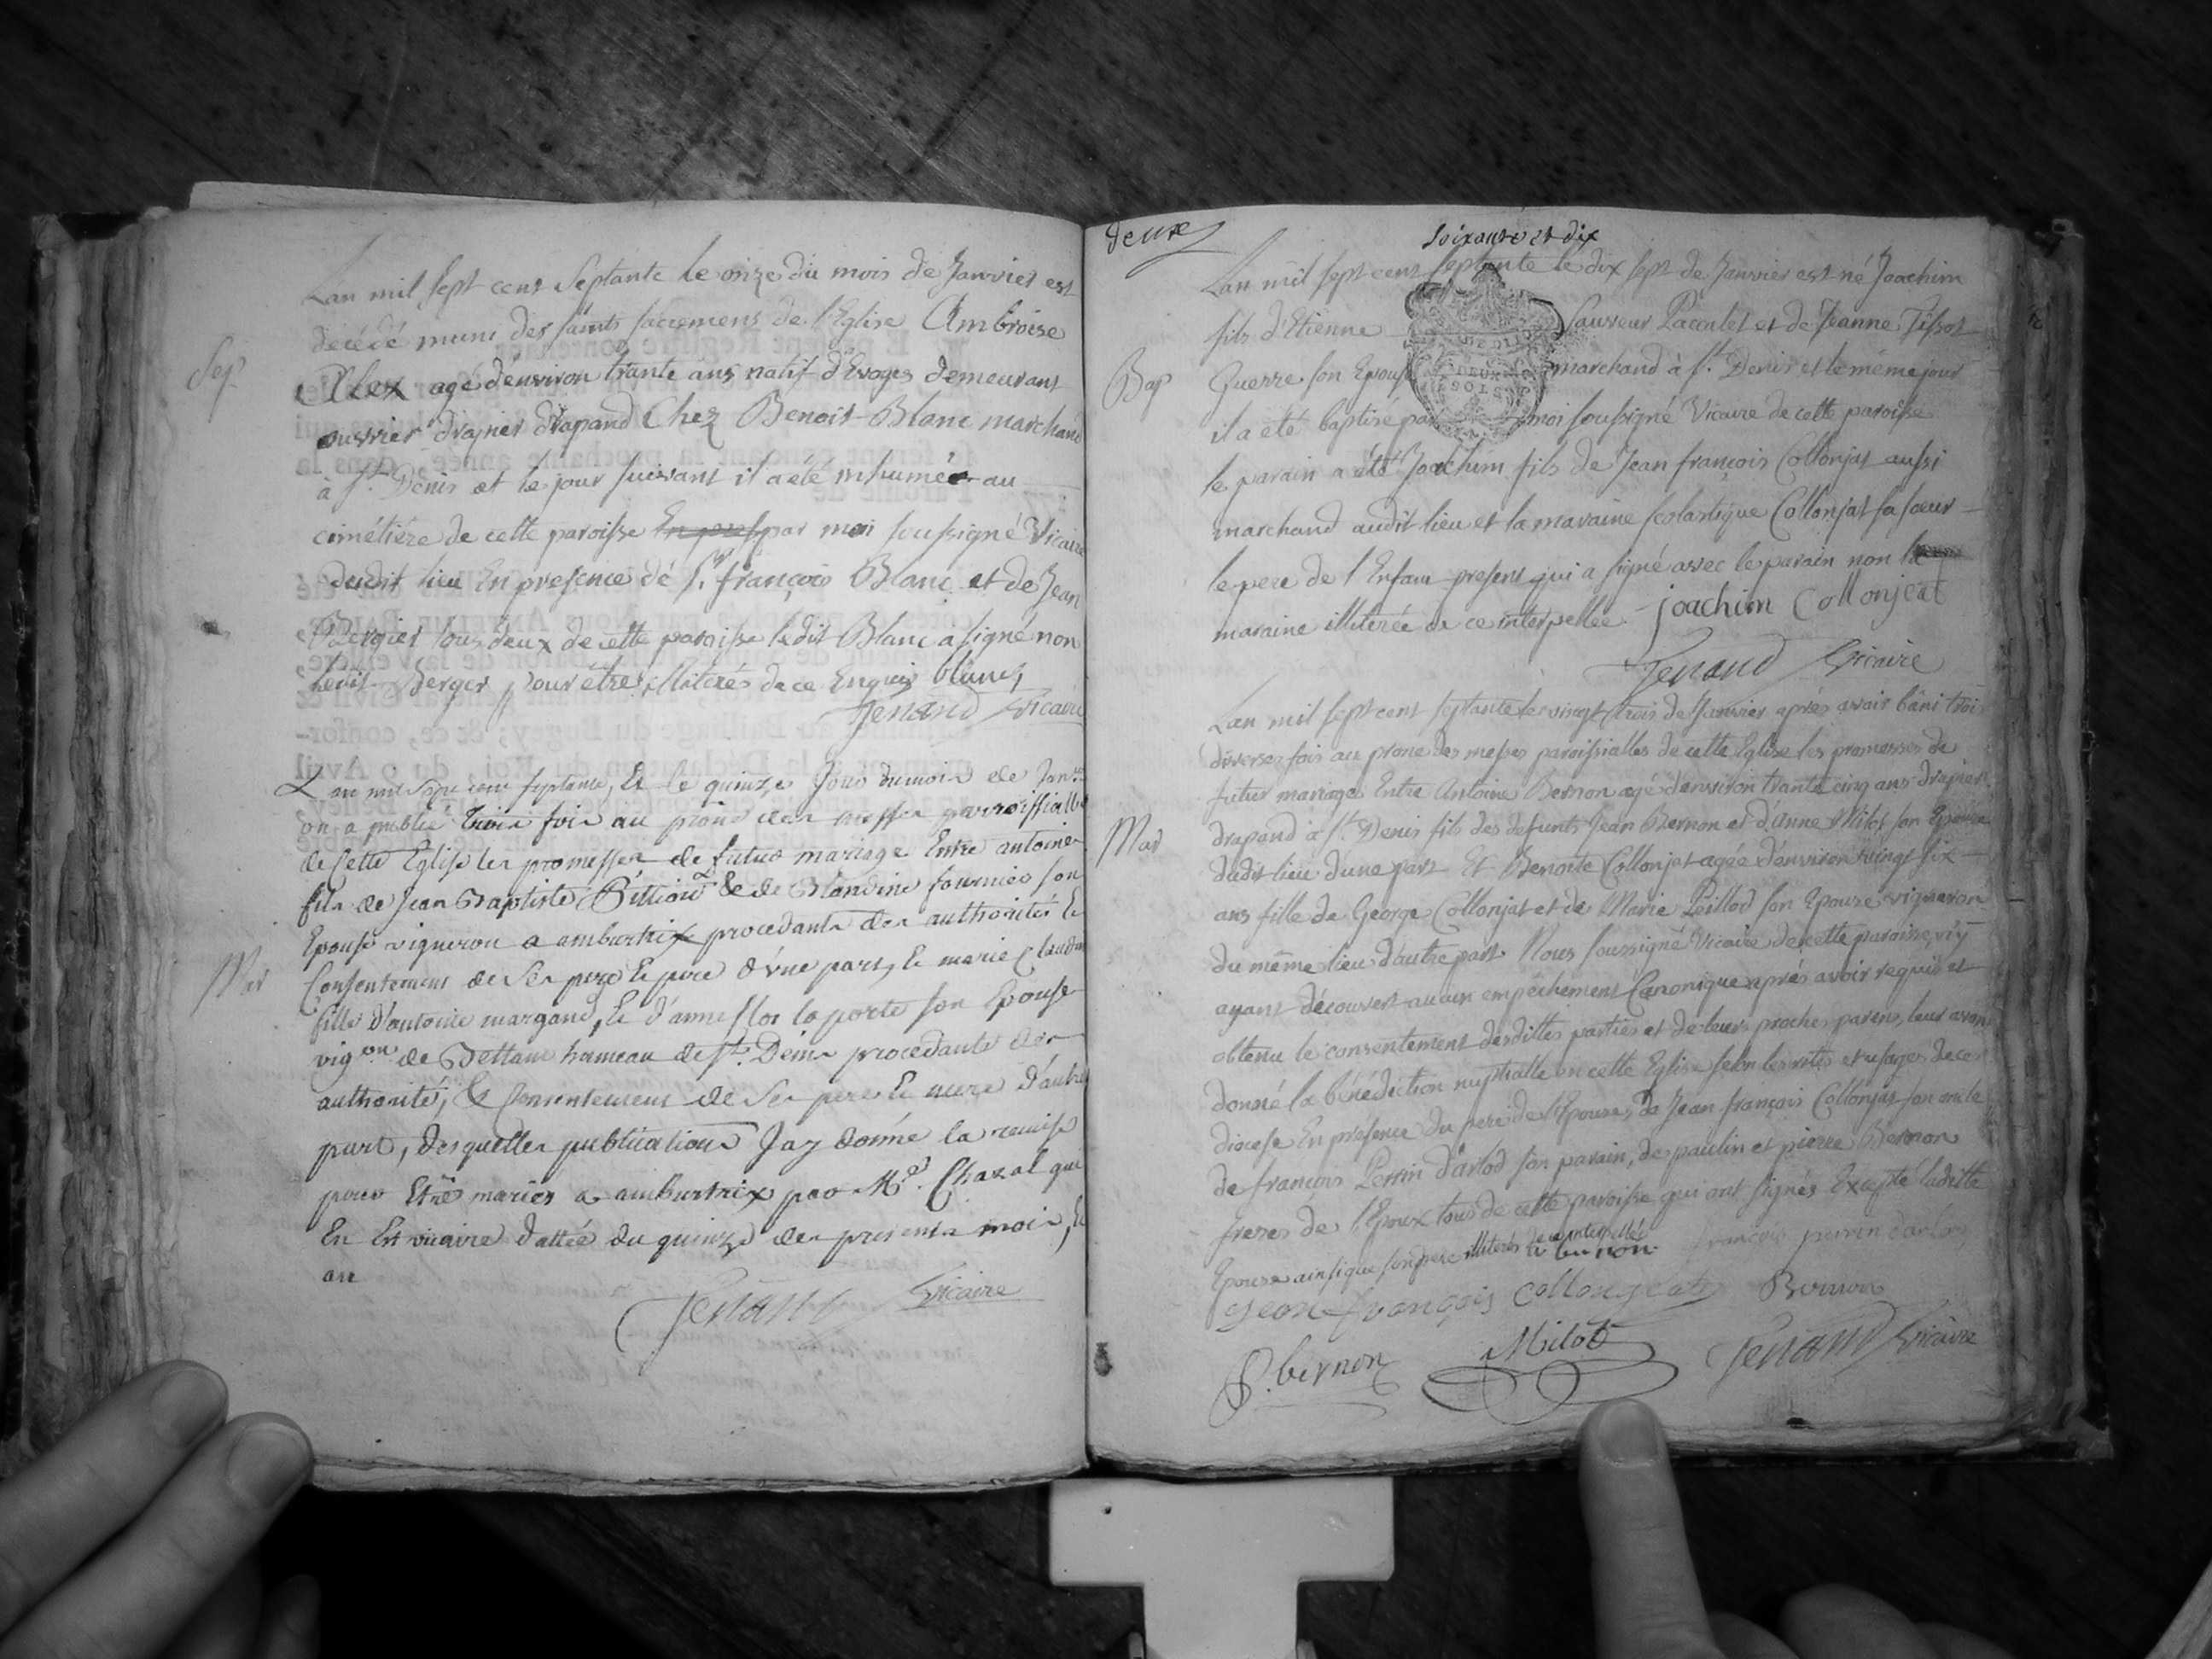 Lan mil sept cent Septante le onze du mois de Janvier est
décédé muni des saints sacremens de l'Eglise Ambroise
Sep.
Alex agé denviron trante ans natif d'Evoges demeurant
ouvrier drapier drapand Chez Benoit Blanc marchand
à St. Denis et le jour suivant il a été inhumé au
cimétiére de cette paroisse par moi soussigné Vicaire
dudit lieu En presence de Sr. françois Blanc et de Jean
Bergier tous deux de cette paroisse ledit Blanc a signé non
ledit Berger pour être illiterés de ce Enquis blanc
Jenand Vicaire
Lan mil sept cent septante, Et le quinze Jour du mois de Janer
on a publié trois fois au prône des messes parroissialles
de Cette Eglise les promesses de futur mariage Entre antoine
fils de Jean Baptiste Billion & de Blandine fournier son
Epouse vigneron a amburtrix procedants des authorités Et
Mar
Consentement de Ses pere Et d'vne part, Et marie Claudine
fille d'antoine margand, Et d'anne laporte son Epouse
vigon. de Bettant hameau de St. Denis procedante des
authorité, & Consentement de Ses pere Et mere d'autre
part, desquelles publications Jay donné la remise
pour Etre mariés a amburtrix par Mr. Chazal qui
En Est vicaire dattée du quinze des presents mois, Et
an
Jenand Vicaire
deux
soixante et dix
Lan mil sept cent septante le dix sept de Janvier est né Joachim
fils d'Etienne Sauveur Paccalet et de Jeanne Tissot
Bap
Guerre son Epouse marchand à St. Denis et le même jour
il a été baptisé par moi soussigné Vicaire de cette paroisse
le parain a été Joachim fils de Jean françois Collonjat aussi
marchand audit lieu et la maraine scolastique Collonjat sa soeur
le pere de l'Enfant present qui a signé avec le parain non la
maraine illiterée de ce interpellée Joachim Collonjeat
Jenand Vicaire
Lan mil sept cent septante le vingt trois de Janvier aprés avoir bâni trois
diverses fois au prone des messes paroissialles de cette Eglise les promesses de
futur mariage Entre Antoine Bernon agé denviron trante cinq ans drapier
Mar
drapand à St. Denis fils des defunts Jean Bernon et d'anne Milot son Epouse
dudit lieu dune part Et Benoite Collonjat agée denviron vingt six
ans fille de George Collonjat et de Marie Peillod son Epouse vigneron
du même lieu d'autre part. Nous soussigné Vicaire de cette paroisse n'y
ayant découvert aucun empêchement Canonique aprés avoir requis et
obtenu le consentement desdittes parties et de leurs proches parens, leur avons
donné la bénédiction nuptialle en cette Eglise selon les rits et usages de ce
diocese En presence du pere de l'Epouse, de Jean françois Collonjat son oncle
de françois Perrin d'arlod son parain, de paulin et pierre Bernon
freres de l'Epoux tous de cette paroisse qui ont signés Excepté laditte
Epouse ainsi que son pere illiterés de ce interpellés
bernon françois perrin darlod
Jean françois collonjeat Bernon
P. bernon Milot Jenand Vicaire